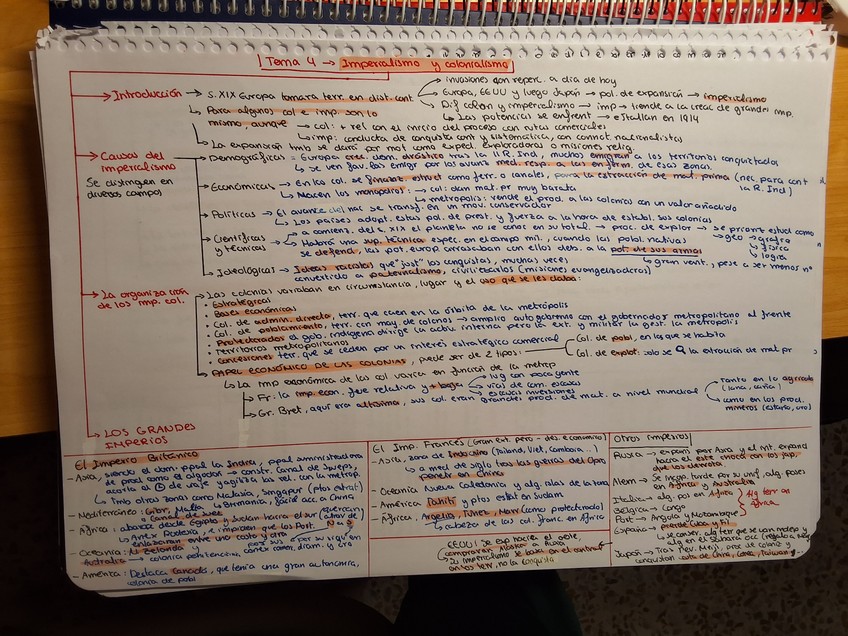 Tema 4 → Imperialismo y colonialismo
→ Introducción → S. XIX Europa tomara terr. en dist. cont
invasiones con reperc. a día de hoy
Europa, EEUU y luego Japón → pol. de expansión → imperialismo
Dif colon y imperialismo → imp → tiende a la creac de grandes imp.
↳ Las potencias se enfrent → estallan en 1914
↳ Para algunos col e imp. son lo
mismo, aunque → col: + rel con el inicio del proceso con rutas comerciales
→ imp: conducta de conquista cont y sistemática, con connot. nacionalistas
↳ La expansión tmb se dará por mot como exped. exploradoras o misiones relig.
→ Causas del
imperialismo
Se distinguen en
diversos campos
→ Demográficas → Europa crec. dem. drástico tras la II R. Ind, muchos emigran a los territorios conquistados
↳ se ven fav. las emigr por los avanc med. resp. a las enferm. de esas zonas.
→ Económicas → En las col. se financ. estruct como ferr. o canales, para la extracción de mat. prima (nec. para cont
la R. Ind)
↳ Nacen los monopolios: → col: dan mat. pr muy barata
↳ metropolis: vende el prod. a las colonias con un valor añadido
→ Políticas → El avance del nac se transf. en un mov. conservador
↳ Los países adopt. estas pol. de prest. y fuerza a la hora de establ. sus colonias
→ Científicas
y técnicas
→ a comienz. del s. XIX el planeta no se conoc en su total. → proc. de explor → se priorit estud como
geo → grafía
física
logía
↳ Habrá una sup. técnica espec. en el campo mil. cuando las pobl. nativas
se defend, las pot. europ arrasaban con ellos deb. a la pot. de sus armas
↳ gran vent., pese a ser menos nº
→ Ideológicas → Ideas racistas que "just" las conquistas, muchas veces
convertido a paternalismo, civilizarlos (misiones evangelizadoras)
→ La organización
de los imp. col.
→ Las colonias variaban en circunstancia, lugar y el uso que se les daba:
• Estratégicas
• Bases económicas
• Col. de admin. directa, terr. que caen en la órbita de la metrópolis
• Col. de poblamiento, terr. con may. de colonos → amplio autogobierno con el gobernador metropolitano al frente
• Protectorados el gob. indígena dirige la actiu interna pero la ext. y militar la gest. la metropolis
• Territorios metropolitanos
• Concesiones terr. que se ceden por un interés estratégico comercial
PAPEL ECONÓMICO DE LAS COLONIAS, puede ser de 2 tipos:
Col. de pobl, en las que se habita
Col. de explot: solo se la extracción de mat pr
↳ La imp económica de las col varía en función de la metrop
→ Fr: la imp. econ. fue relativa y + baja
lug con poca gente
vías de com. escasas
escasas inversiones
→ Gr. Bret, aquí era altísima, sus col. eran grandes prod. de mat. a nivel mundial
tanto en lo agrícola
(lana, caña)
como en los prod.
mineros (estaño, oro)
→ LOS GRANDES
IMPERIOS
El Imperio Británico
- Asia, siendo el dom. ppal la India, ppal suministradora
de prod como el algodón → constr. Canal de Suez,
acorta el de viaje y agiliza las rel. con la metrop.
↳ Tmb otras zonas como Malasia, Singapur (ptos estrat)
- Mediterráneo: Gibr, Malta,
y Canal de Suez
Birmania, facil acc a China
- África: abarca desde Egipto y Sudán hacia el sur
↳ Anex Rodesia, e impiden que los Port.
enlazaran entre una costa y otra
- Oceanía: N. Zelanda y
Australia → colonia penitenciaria
- América: Destaca Canadá, que tenía una gran autonomía,
colonia de pobl
El Imp. Francés (Gran ext. pero - des. económico)
- Asia, zona de Indochina (Tailand, Viet, Camboya...)
↳ a med de siglo tras las guerras del Opio
penetr en China
- Oceanía Nueva Caledonia y alg. islas de la zona
- América Tahití y ptos estrat en Sudam
- África: Argelia, Túnez, Marr (como protectorado)
↳ cabeza de las col. franc. en África
EEUU: Se exp hacia el oeste,
compraron Alaska a Rusia
↳ Su imperialismo se basa en el control
en los terr, no la conquista
Otros imperios
Rusia → expans por Asia y al int. expand
hacia el este choca con los jap.
que los derrota.
Alem → Se incorp. tarde por su unif. alg. poses
en África y Australia
Italia → alg. pos en África
Bélgica → Congo
Port → Angola y Mozambique
España → pierde Cuba y Fil
↳ se conser. alg terr
Japón → Tras Rev. Meiji, proc de colonz y
conquistan costa de China, Corea, Taiwan y...